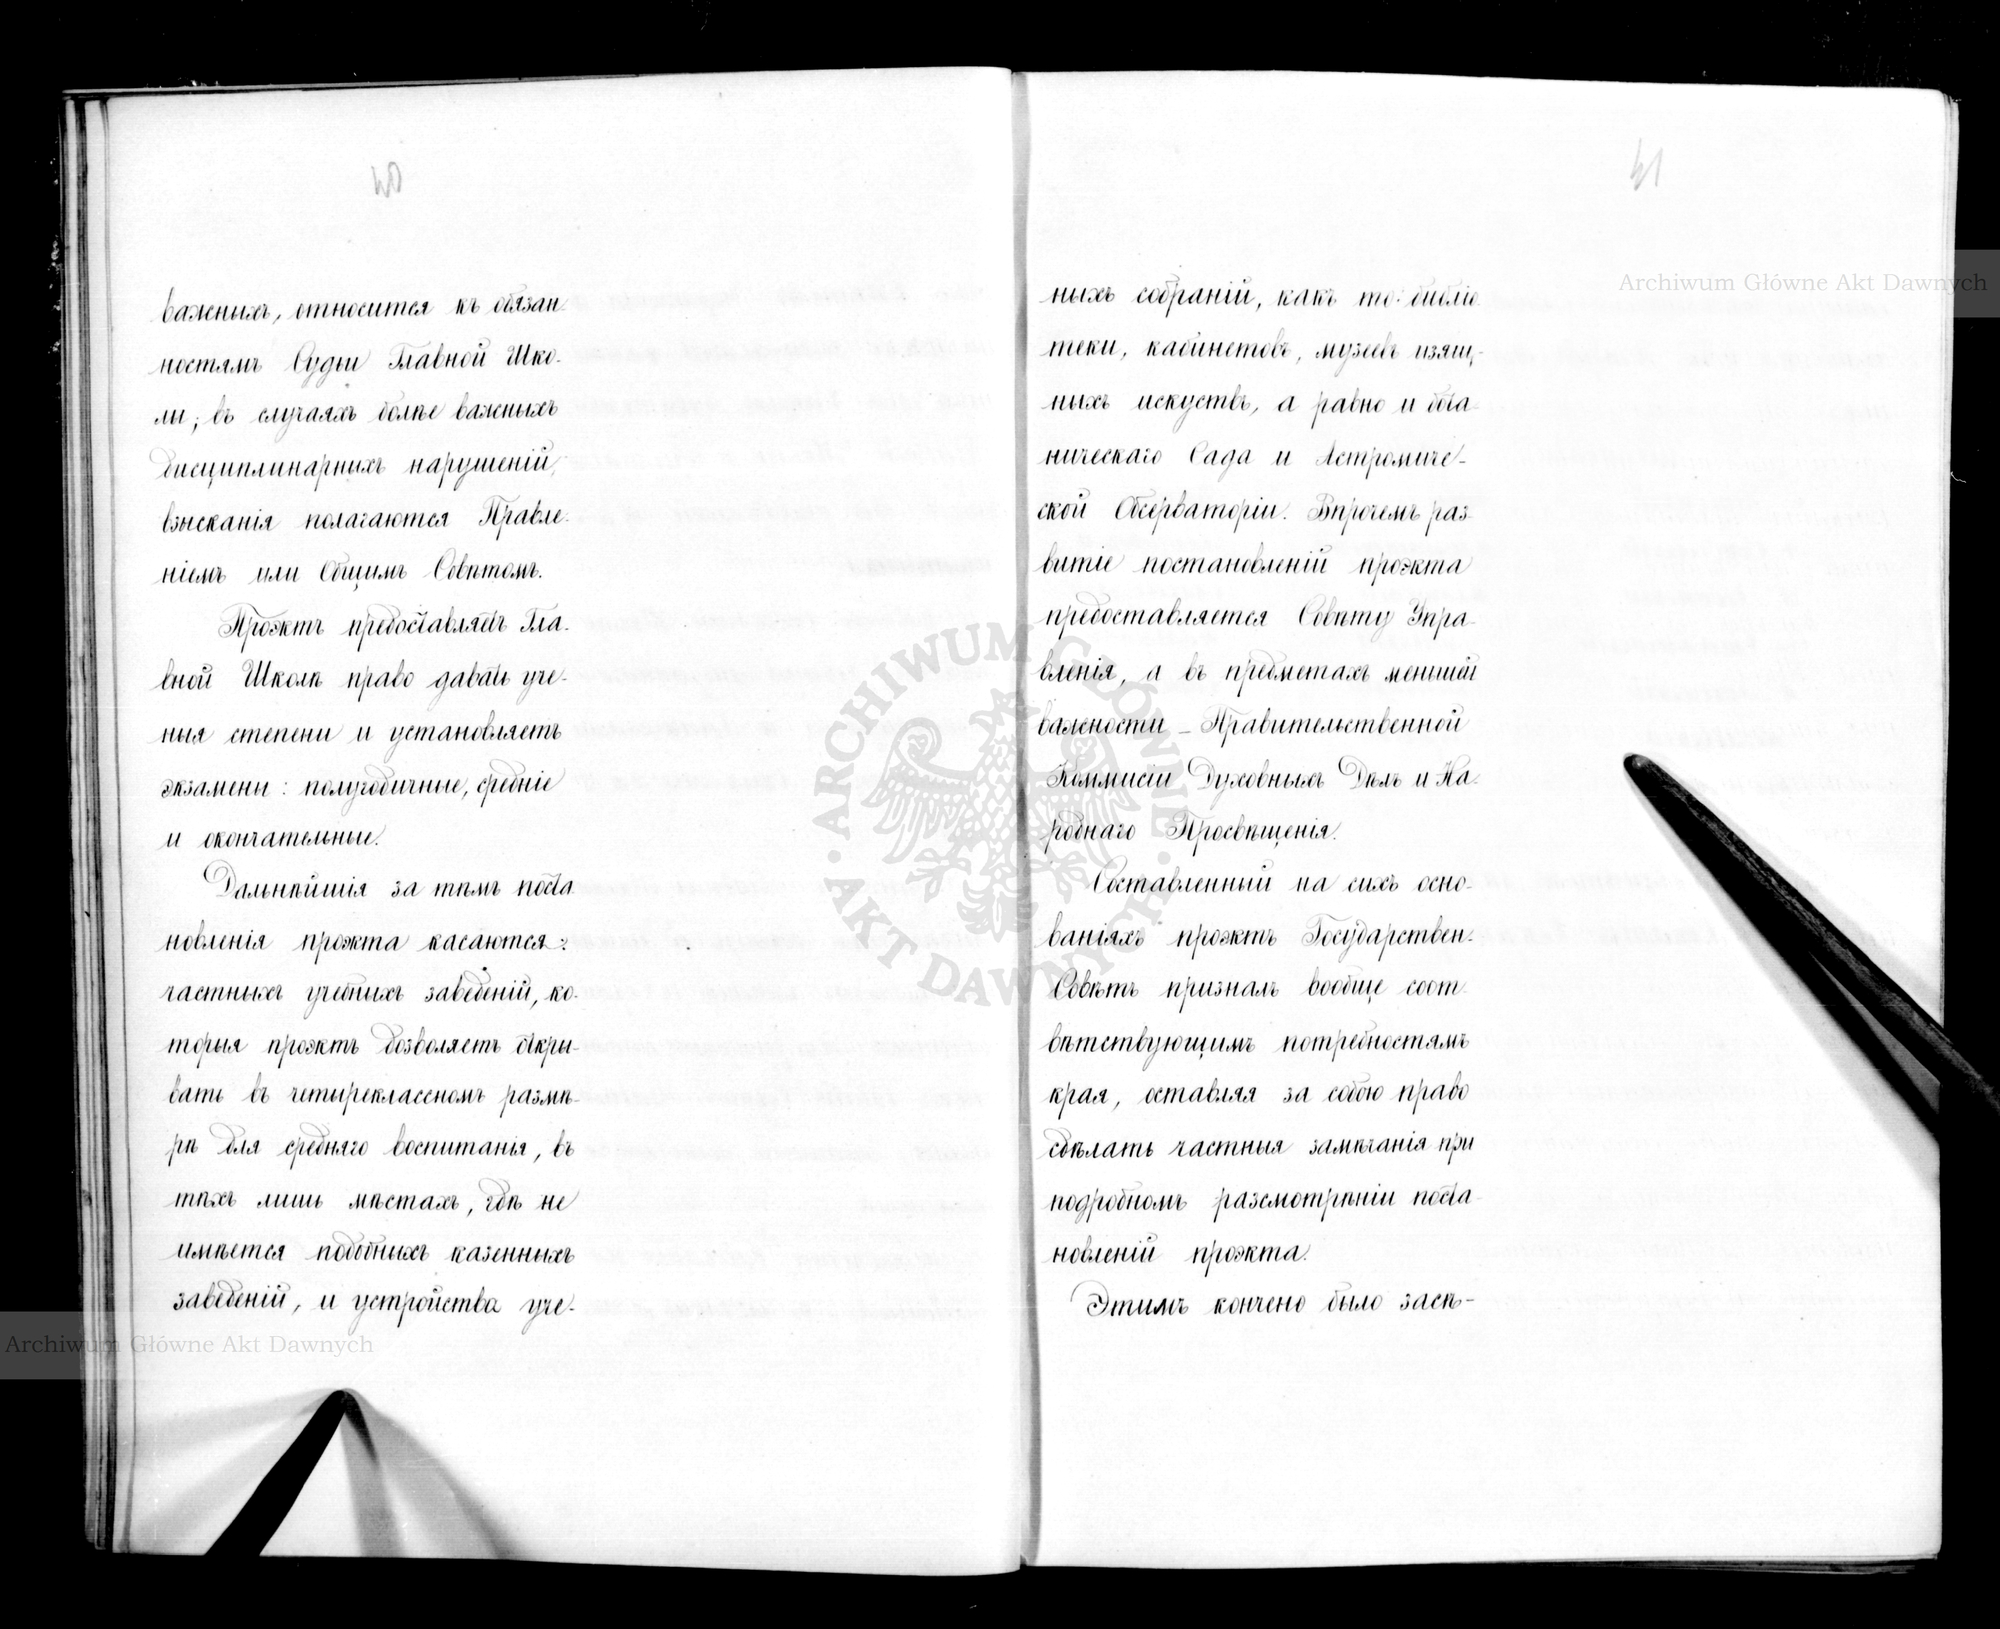 40
важныхъ, относится къ обязан-
ностямъ Судьи Главной Шко-
лы; въ случаяхъ болѣе важныхъ
дисциплинарныхъ нарушеній,
взысканія полагаются Правле-
ніемъ или Общимъ Совѣтомъ.
Проэктъ предоставляетъ Гла-
вной Школѣ право давать уче-
ныя степени и установляетъ
экзамены: полугодичные, средніе
и окончательные.
Дальнѣйшія за тѣмъ поста
новленія проэкта касаются:
частныхъ учебныхъ заведеній, ко-
торыя проэктъ дозволяетъ откры-
вать въ четыреклассномъ размѣ-
рѣ для средняго воспитанія, въ
тѣхъ лишь мѣстахъ, гдѣ не
имѣется подобныхъ казенныхъ
заведеній, и устройства уче-
41
ныхъ собраній, какъ то: библіо
теки, кабинетовъ, музеевъ изящ-
ныхъ искуствъ, а равно и бота-
ническаго Сада и Астромиче-
ской Обсерваторіи. Впрочемъ раз-
витіе постановленій проэкта
предоставляется Совѣту Упра-
вленія, а въ предметахъ меньшей
важности – Правительственной
Коммисіи Духовныхъ Дѣлъ и На-
роднаго Просвѣщенія.
Составленный на сихъ осно-
ваніяхъ проэктъ Государствен-
Совѣтъ призналъ вообще соот-
вѣтствующимъ потребностямъ
края, оставляя за собою право
сдѣлать частныя замѣчанія при
подробномъ разсмотрѣніи поста-
новленій проэкта.
Этимъ кончено было засѣ-
Archiwum Główne Akt Dawnych
Archiwum Główne Akt Dawnych
ARCHIWUM GŁÓWNE · AKT DAWNYCH ·